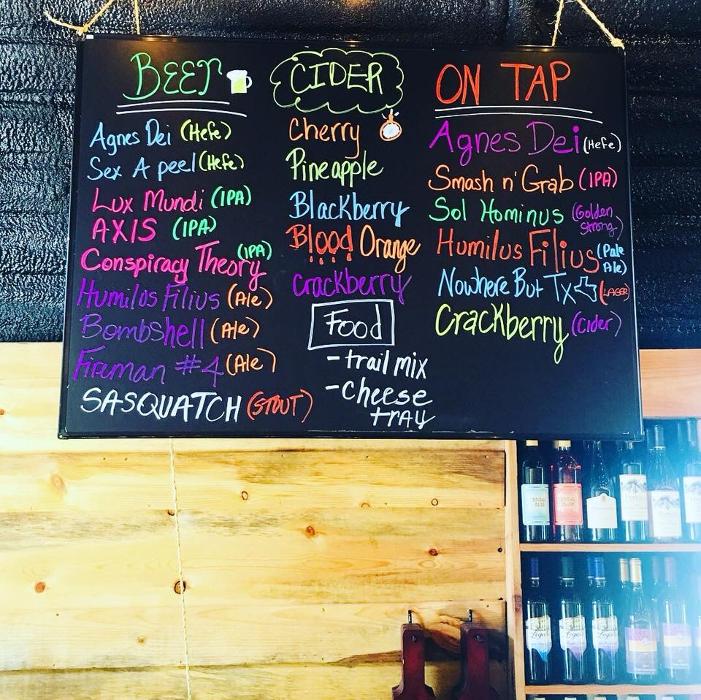 BEER
Agnes Dei (Hefe)
Sex A peel (Hefe)
Lux Mundi (IPA)
AXIS (IPA)
Conspiracy Theory (IPA)
Humilus Filius (Ale)
Bombshell (Ale)
Fireman #4 (Ale)
SASQUATCH (STOUT)
CIDER
Cherry
Pineapple
Blackberry
Blood Orange
Crackberry
Food
- trail mix
- Cheese
tray
ON TAP
Agnes Dei (Hefe)
Smash n' Grab (IPA)
Sol Hominus (Golden
Strong)
Humilus Filius (Pale
Ale)
Nowhere But Tx (LAGER)
Crackberry (Cider)